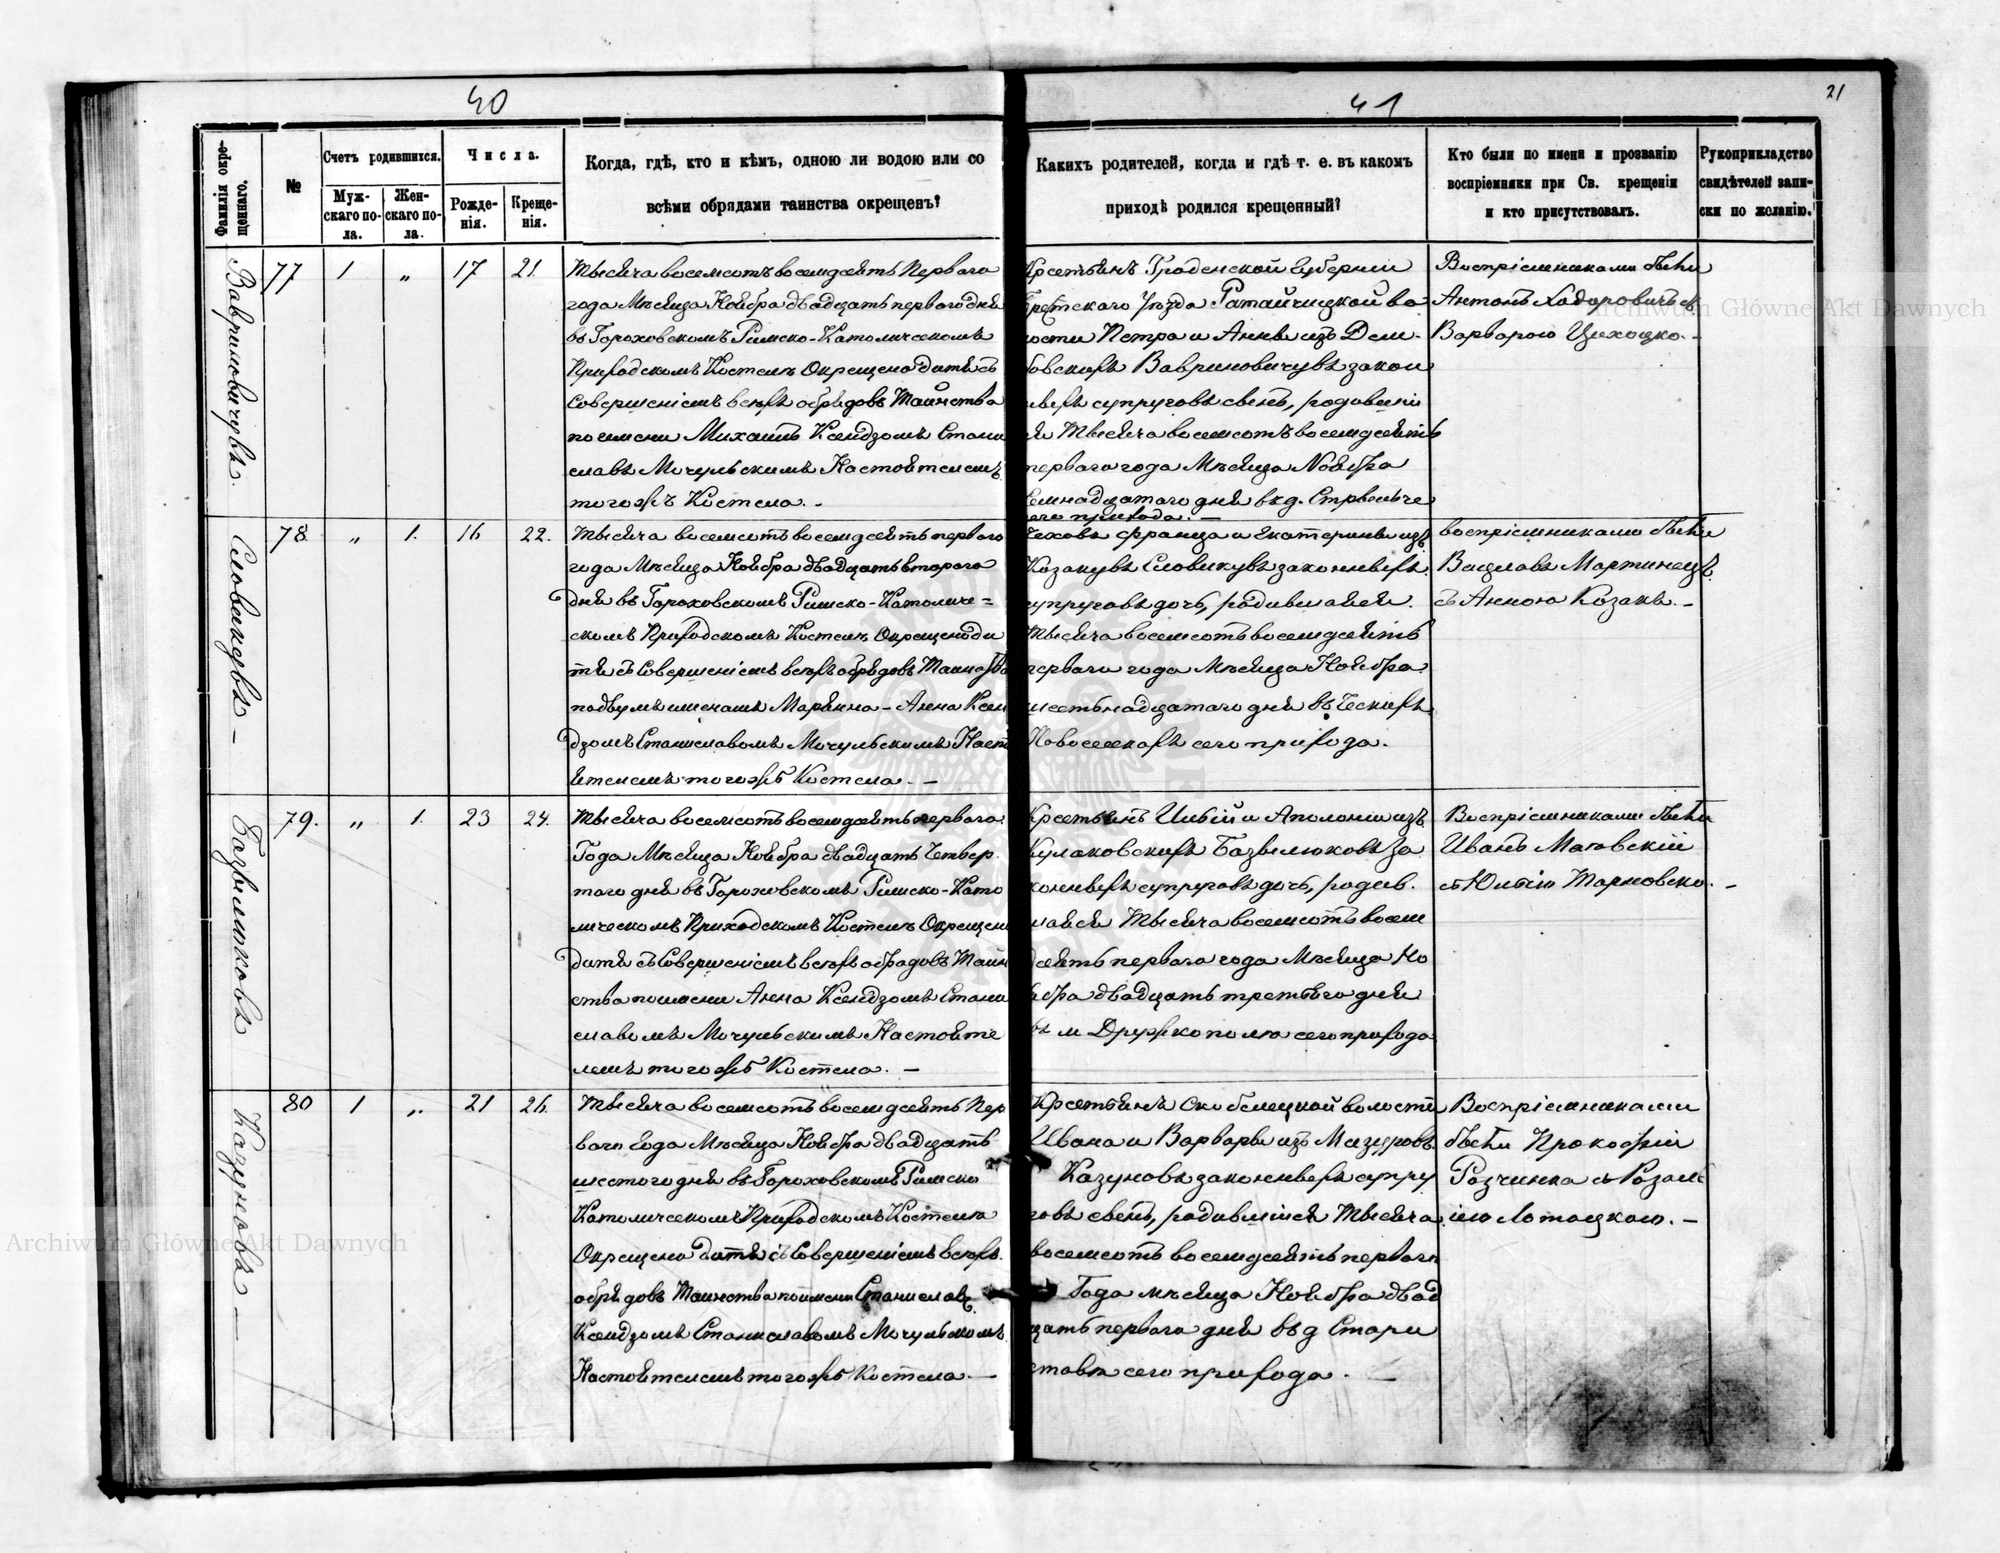 40
41
21
Фамилія окрещеннаго.
№
Счетъ родившихся.
Мужскаго пола.
Женскаго пола.
Числа.
Рожденія.
Крещенія.
Когда, гдѣ, кто и кѣмъ, одною ли водою или со
всѣми обрядами таинства окрещенъ?
Какихъ родителей, когда и гдѣ т. е. въ какомъ
приходѣ родился крещенный?
Кто были по имени и прозванію
воспріемники при Св. крещеніи
и кто присутствовалъ.
Рукоприкладство
свидѣтелей записки по желанію.
Вавриновичувъ.
77
1
„
17
21.
Тысяча восемсотъ восемдсять Перваго
года Мѣсяца Ноября двадцать перваго дня
въ Гороховскомъ Римско-Католическомъ
Приходскомъ Костелѣ Окрещено дитя съ
Совершеніемъ всѣхъ обрядовъ Таинства
по имени Михаилъ Ксендзомъ Стани
славъ Мочульскимъ Настоятелемъ
тогожъ Костела. -
Крестьянъ Гроденской Губерніи
Брестскаго Уѣзда Ратайчицкой во
лости Петра и Анны изъ Дем-
бовскихъ Вавриновичувъ закон
ныхъ супруговъ сынъ, родивші
ся Тысяча восемсотъ восемдсять
перваго года Мѣсяца Ноября
Семнадцатаго дня вкд. Стрвельче
его прихода. -
Воспріемниками были
Антонъ Ходоровичъ съ
Варварою Цихоцко. -
Словикувъ -
78
„
1.
16
22.
Тысяча восемсотъ восемдсять перваго
года Мѣсяца Ноября двадцать втораго
дня въ Гороховскомъ Римско-Католиче=
скомъ Приходскомъ Костелѣ Окрещено ди
тя съ Совершеніемъ всѣхъ обрядовъ Таинства
подвумъ именамъ Маріянна-Анна Ксен
дзомъ Станиславомъ Мочульскимъ Насто
ятелемъ тогожъ Костела. -
Чеховъ Франца и Екатерины изъ
Козакувъ Словикувъ законныхъ
супруговъ дочь, родившаяся.
Тысяча восемсотъ восемдсять
перваго года Мѣсяца Ноября
шестьнадцатаго дня въ Ческихъ
Новоселкахъ сего прихода.
воспріемниками были
Вацлавъ Мартинецъ
съ Анною Козакъ. -
Базылюковъ
79.
„
1.
23
24.
Тысяча восемсотъ восемдсять перваго
Года Мѣсяца Ноября двадцать Четвер
таго дня въ Гороховскомъ Римско-Като
лическомъ Приходскомъ Костелѣ Окрещено
дитя съ Совершеніемъ всѣхъ обрядовъ Таин
ства по имени Анна Ксендзомъ Стани
славомъ Мочульскимъ Настояте
лемъ тогожъ Костела. -
Крестьянъ Ивбій и Аполоніи изъ
Кулаковскихъ Базылюковъ за
конныхъ супруговъ дочь, родив.
шаяся Тысяча восемсотъ восем
дсять перваго года Мѣсяца Но
ября двадцать третьяго дня
въ м Дружкополю сего прихода
Воспріемниками были
Иванъ Маговскій
съ Юлією Тарновско. -
Казуновъ -
80
1
„
21
26.
Тысяча восемсотъ восемдсять Пер
ваго Года Мѣсяца Ноября двадцать
шестого дня въ Гороховскомъ Римско
Католическомъ Приходскомъ Костелѣ
Окрещено дитя съ Совершеніемъ всѣхъ.
обрядовъ Таинства по имени Станиславъ
Ксендзомъ Станиславомъ Мочульскимъ
Настоятелемъ тогожъ Костела. -
Крестьянъ Скобелецкой волости
Ивана и Варвары изъ Мазуровъ
Казуновъ законныхъ супру
говъ сынъ, родившійся Тысяча
восемсотъ восемдсять перваго
Года мѣсяца Ноября двад
цать перваго дня въ д Стари
ставѣ сего прихода. -
Воспріемниками
были Прокофій
Разчинка съ Розал
ією Лотоцкою. -
Archiwum Główne Akt Dawnych
Archiwum Główne Akt Dawnych